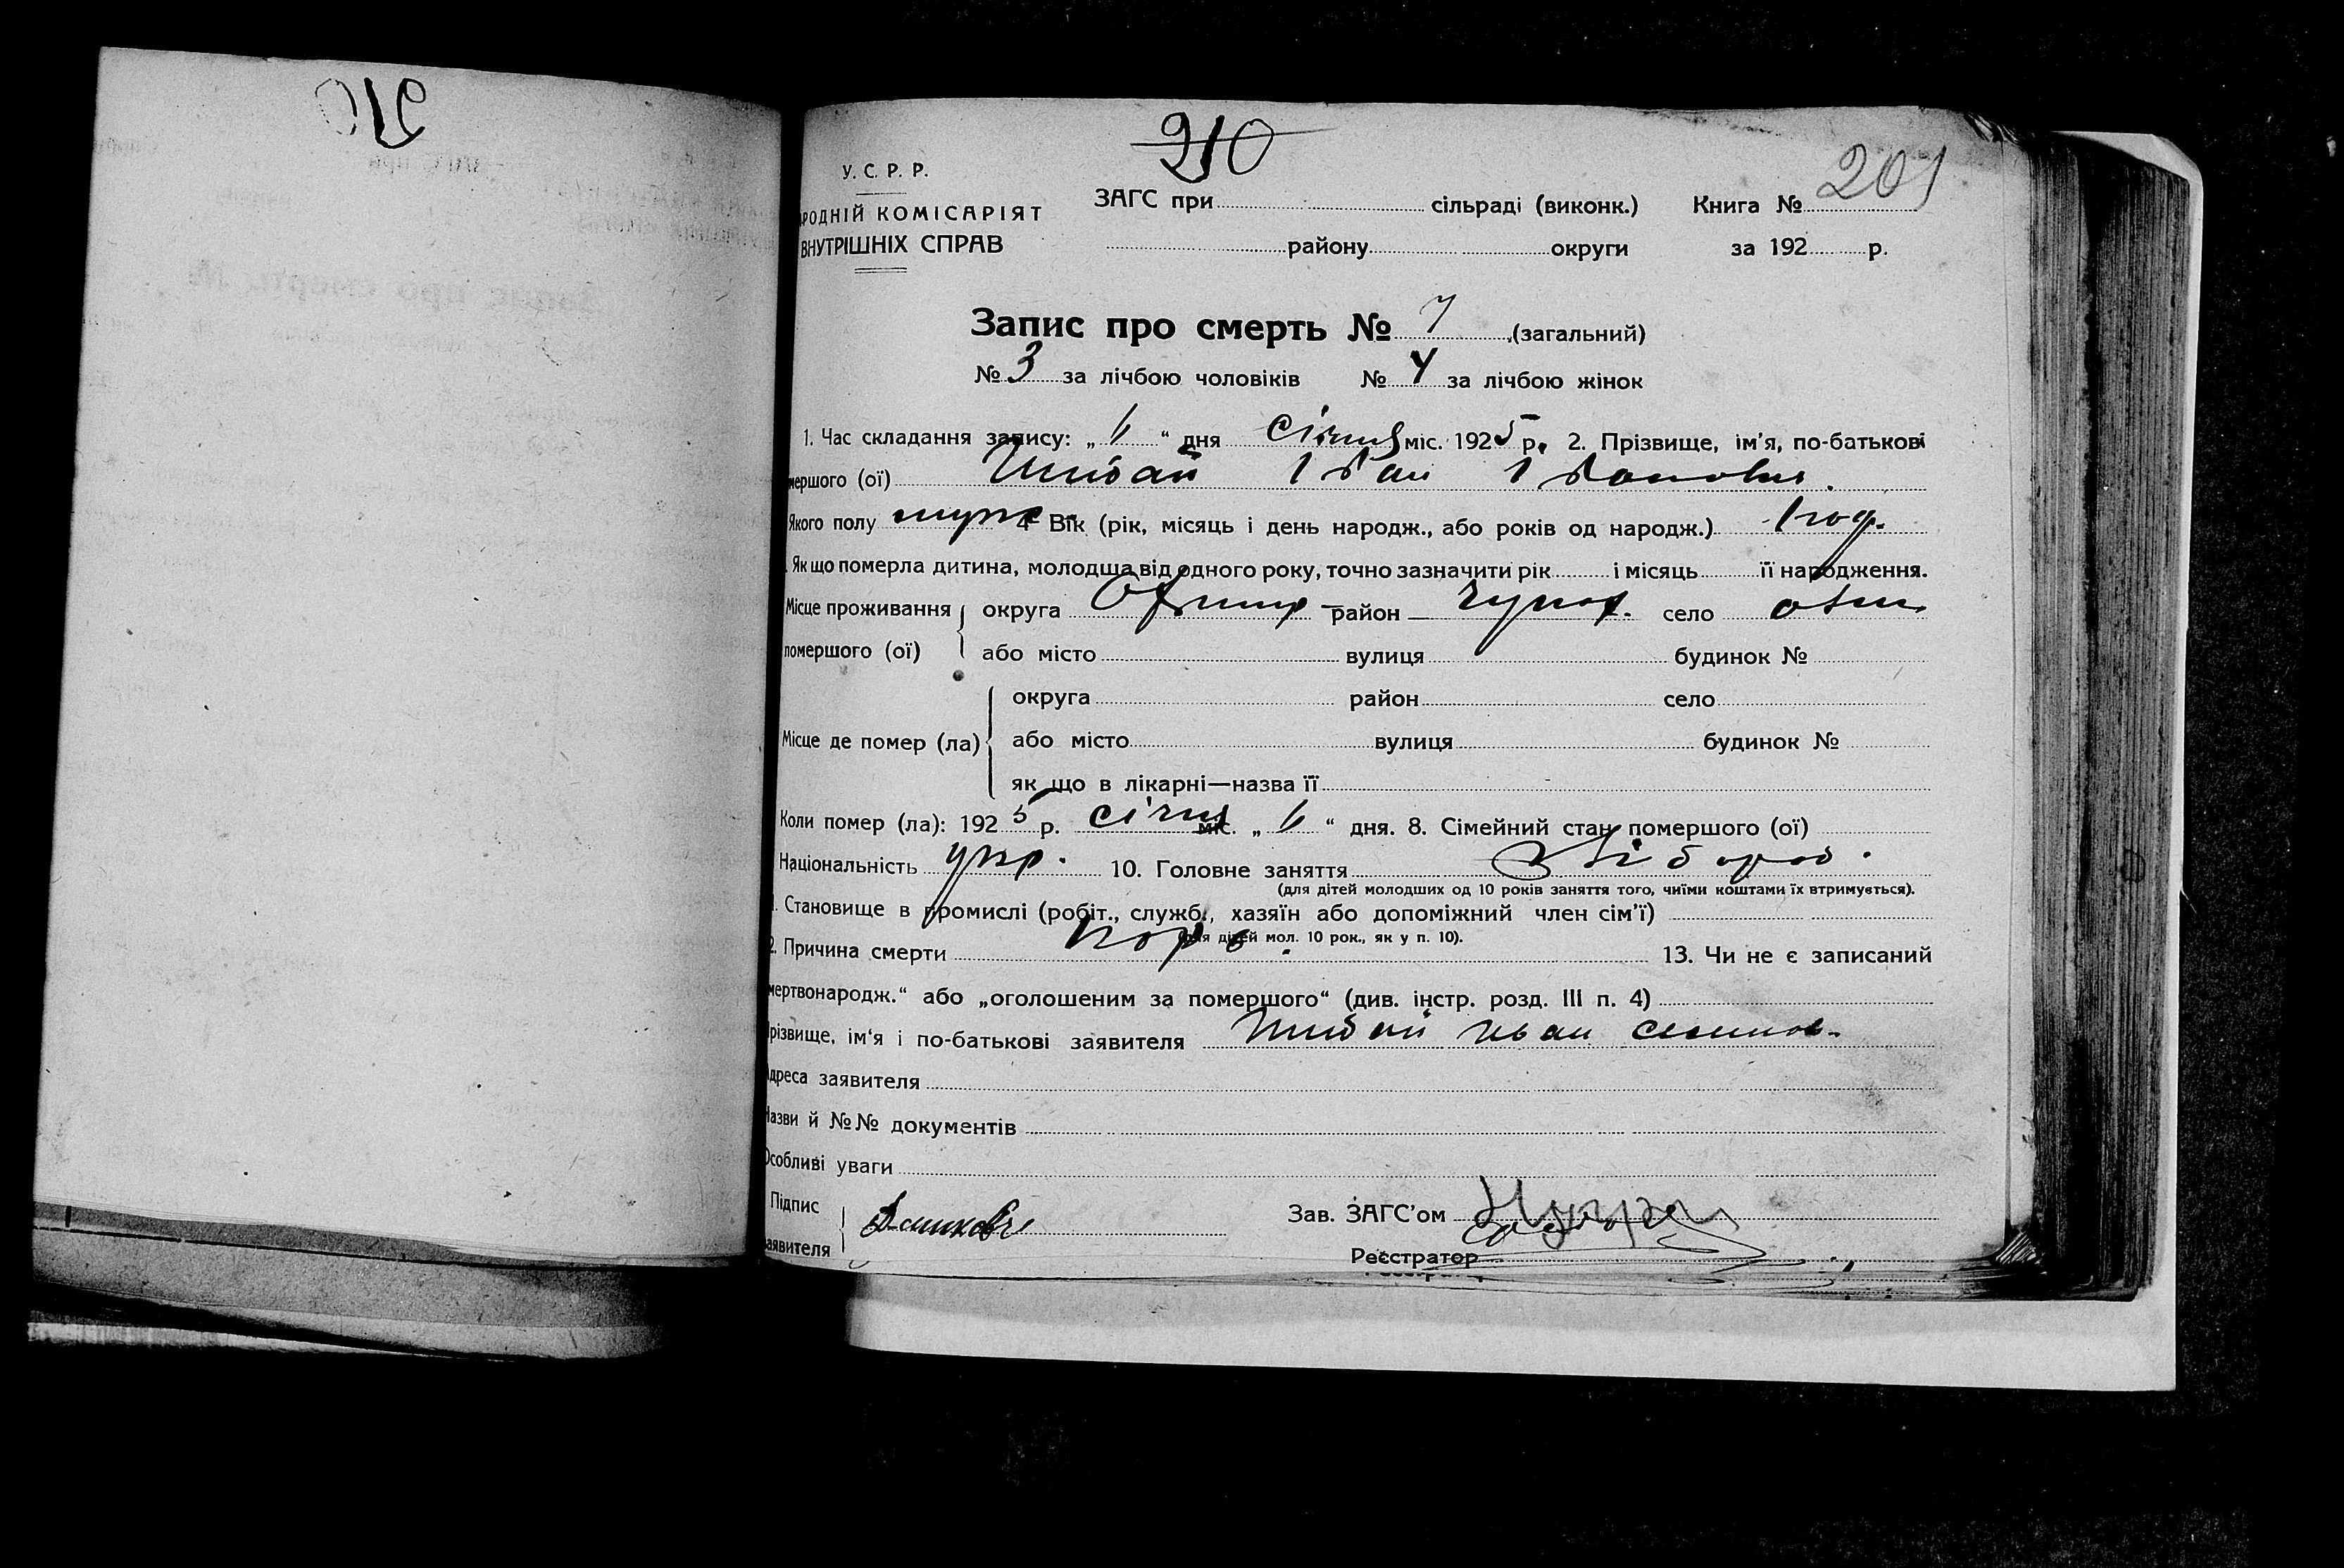 210
201
У. С. Р. Р.
РОДНІЙ КОМІСАРІЯТ
ВНУТРІШНІХ СПРАВ
ЗАГС при сільраді (виконк.) Книга №
району округи за 192 р.
Запис про смерть № 7 (загальний)
№ 3 за лічбою чоловіків № 4 за лічбою жінок
1. Час складання запису: „ 6 “ дня січня міс. 1925 р. 2. Прізвище, ім’я, по-батькові
мершого (ої) Шибай Іван Іванович.
Якого полу муж 4 Вік (рік, місяць і день народж., або років од народж.) 1 год.
. Як що померла дитина, молодша від одного року, точно зазначити рік і місяць її народження.
Місце проживання округа район село
помершого (ої) або місто вулиця будинок №
округа район село
Місце де помер (ла) або місто вулиця будинок №
як що в лікарні—назва її
Коли помер (ла): 1925 р. січня міс. „ 6 “ дня. 8. Сімейний стан помершого (ої)
Національність укр. 10. Головне заняття
(для дітей молодших од 10 років заняття того, чиїми коштами їх втримується).
1. Становище в промислі (робіт., служб., хазяїн або допоміжний член сім’ї)
(для дітей мол. 10 рок., як у п. 10).
2. Причина смерти корь. 13. Чи не є записаний
мертвонародж.“ або „оголошеним за помершого“ (див. інстр. розд. III п. 4)
Прізвище, ім‘я і по-батькові заявителя Шибай Иван
Адреса заявителя
Назви й №№ документів
Особливі уваги
Підпис
заявителя
Зав. ЗАГС’ом
Реєстратор